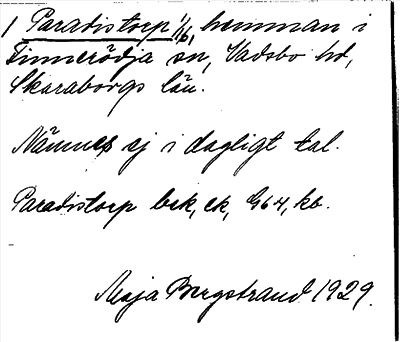 1 Paradistorp 1/6, hemman i
Finnerödja sn, Vadsbo hd,
Skaraborgs län.
Nämnes ej i dagligt tal.
Paradistorp brk, ek, G64, kb.
Maja Bergstrand 1929.